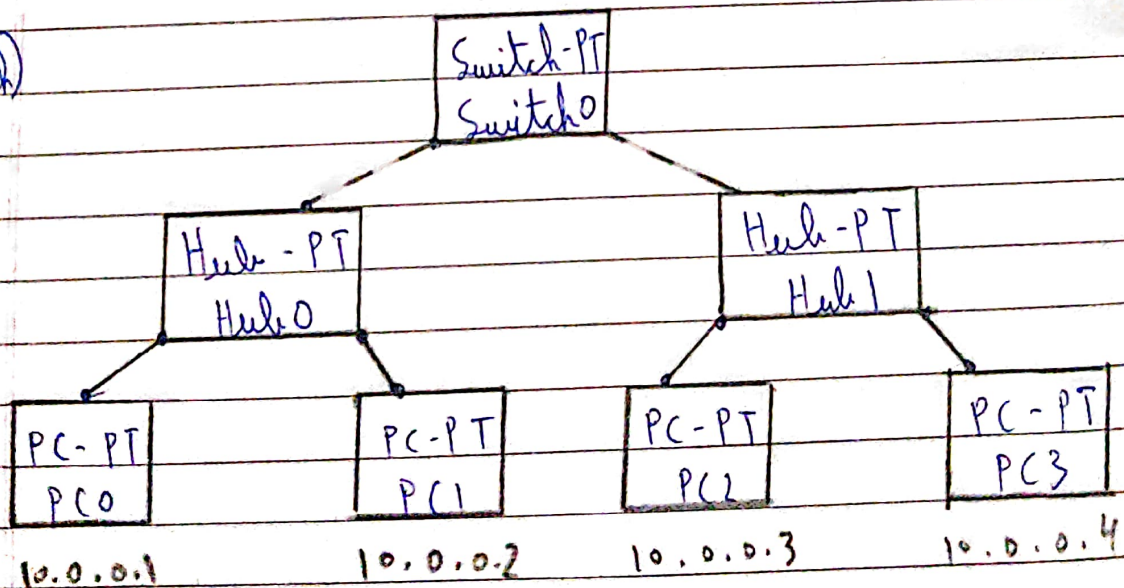 h)
Switch-PT
Switch0
Hub-PT
Hub0
Hub-PT
Hub1
PC-PT
PC0
PC-PT
PC1
PC-PT
PC2
PC-PT
PC3
10.0.0.1
10.0.0.2
10.0.0.3
10.0.0.4